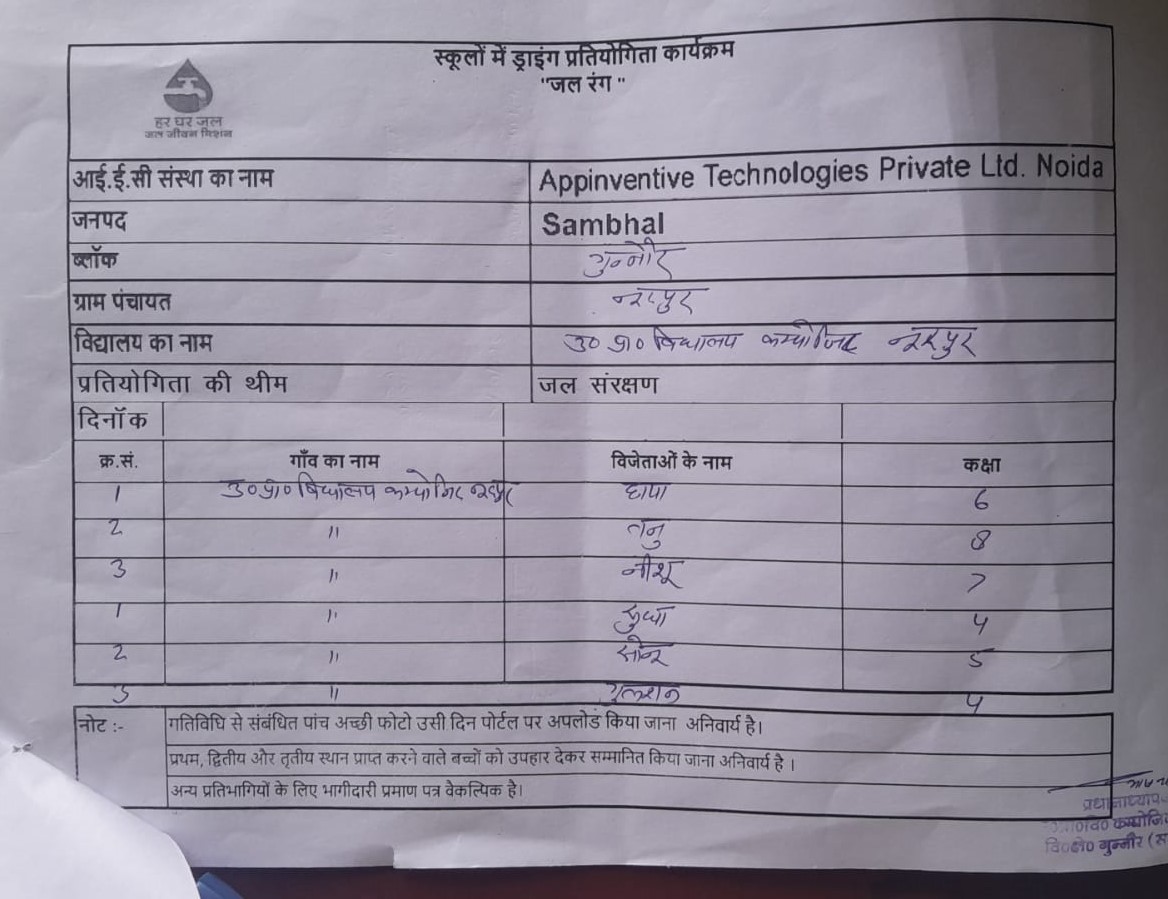 स्कूलों में ड्राइंग प्रतियोगिता कार्यक्रम
"जल रंग "
हर घर जल
जल जीवन मिशन
आई.ई.सी संस्था का नाम Appinventive Technologies Private Ltd. Noida
जनपद Sambhal
ब्लॉक गुन्नौर
ग्राम पंचायत नदरपुर
विद्यालय का नाम उ० प्रा० विद्यालय कम्पोजिट
प्रतियोगिता की थीम जल संरक्षण
दिनॉक
क्र.सं. गाँव का नाम विजेताओं के नाम कक्षा
1 उ०प्रा० विद्यालय कम्पोजिट छाया 6
2 " तनु 8
3 " नीशू 7
1 " सुधा 4
2 " सोनू 5
3 " गुलशन 4
नोट :- गतिविधि से संबंधित पांच अच्छी फोटो उसी दिन पोर्टल पर अपलोड किया जाना अनिवार्य है।
प्रथम, द्वितीय और तृतीय स्थान प्राप्त करने वाले बच्चों को उपहार देकर सम्मानित किया जाना अनिवार्य है ।
अन्य प्रतिभागियों के लिए भागीदारी प्रमाण पत्र वैकल्पिक है।
वि०क्षे० गुन्नौर